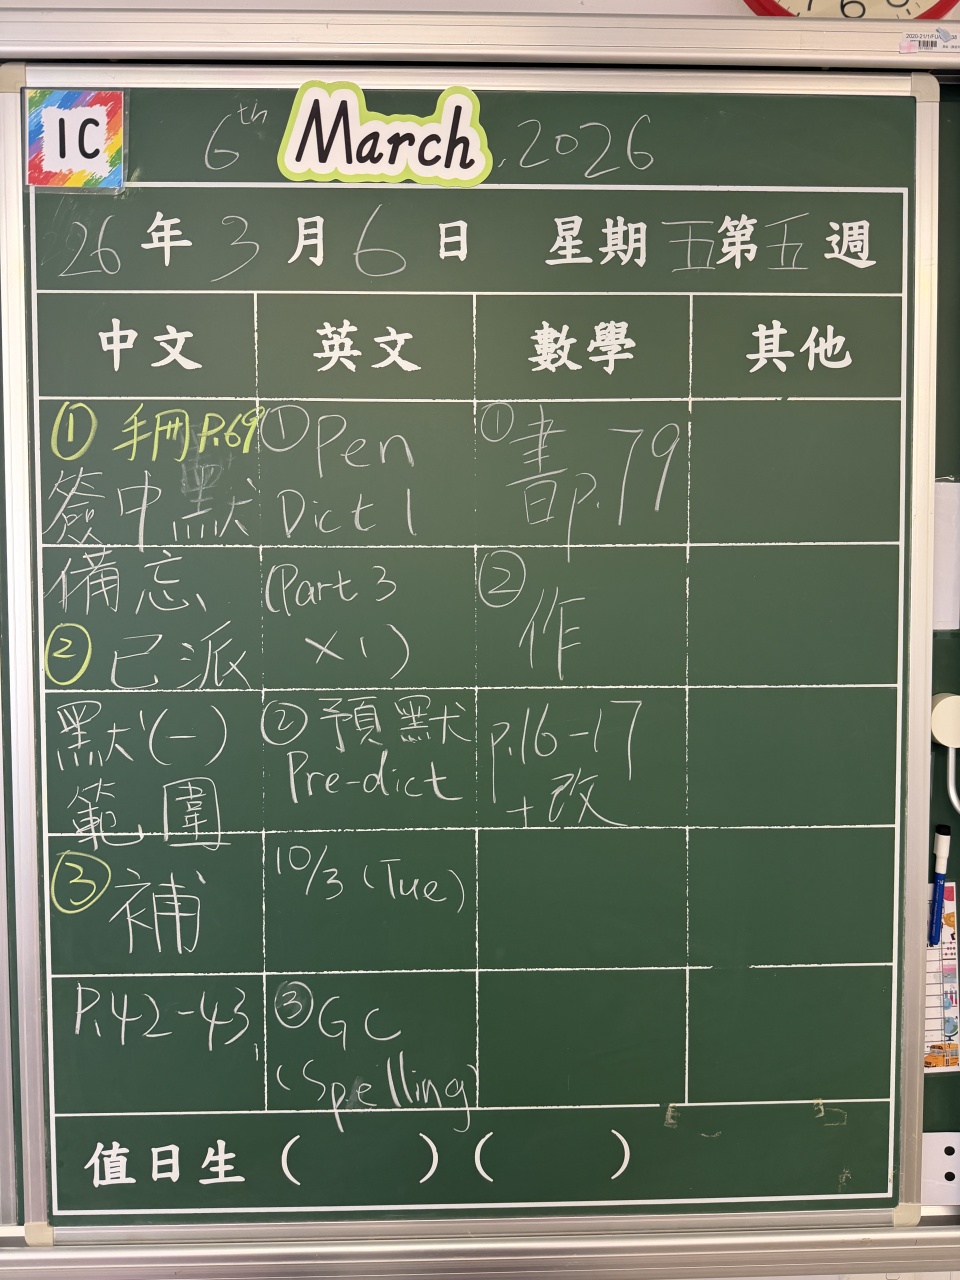 1C
6th March, 2026
26年3月6日 星期五第五週
中文
① 手冊P.69
簽中默
備忘、
② 已派
默(一)
範圍
③ 補
P.42-43
英文
① Pen
Dict 1
(Part 3
×1)
② 預默
Pre-dict
10/3 (Tue)
③ GC
(Spelling)
數學
① 書p.79
② 作
p.16-17
+改
其他
值日生 (    ) (    )